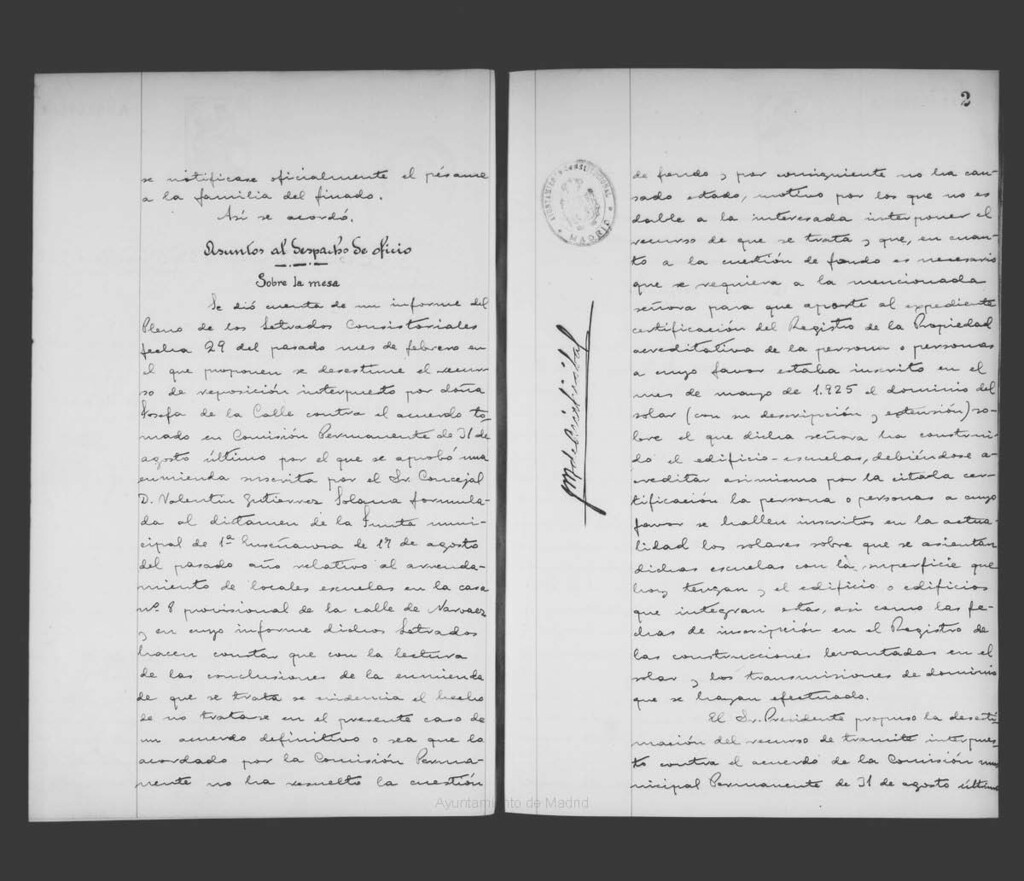 se notificase oficialmente el pésame
a la familia del finado.
Así se acordó.
Asuntos al despacho de oficio
Sobre la mesa
Se dió cuenta de un informe del
Pleno de los Letrados Consistoriales
fecha 29 del pasado mes de febrero en
el que proponen se desestime el recur-
so de reposición interpuesto por doña
Josefa de la Calle contra el acuerdo to-
mado en Comisión Permanente de 31 de
agosto último por el que se aprobó una
enmienda suscrita por el Sr. Concejal
D. Valentín Gutierrez Solana formula-
da al dictamen de la Junta muni-
cipal de 1ª Enseñanza de 17 de agosto
del pasado año relativo al arrenda-
miento de locales escuelas en la casa
nº 8 provisional de la calle de Narvaez
y en cuyo informe dichos Letrados
hacen constar que con la lectura
de las conclusiones de la enmienda
de que se trata se evidencia el hecho
de no tratarse en el presente caso de
un acuerdo definitivo o sea que lo
acordado por la Comisión Perma-
nente no ha resuelto la cuestión
2
AYUNTAMIENTO CONSTITUCIONAL
MADRID
de fondo y por consiguiente no ha cau-
sado estado, motivo por los que no es
dable a la interesada interponer el
recurso de que se trata y que, en cuan-
to a la cuestión de fondo es necesario
que se requiera a la mencionada
señora para que aporte al expediente
certificación del Registro de la Propiedad
acreditativa de la persona o personas
a cuyo favor estaba inscrito en el
mes de marzo de 1.925 el dominio del
solar (con su descripción y extensión) so-
bre el que dicha señora ha construi-
do el edificio-escuelas, debiéndose a-
creditar asimismo por la citada cer-
tificación la persona o personas a cuyo
favor se hallen inscritos en la actua-
lidad los solares sobre que se asientan
dichas escuelas con la superficie que
hoy tengan y el edificio o edificios
que integran estas, asi como las fe-
chas de inscripción en el Registro de
las construcciones levantadas en el
solar y las transmisiones de dominio
que se hayan efectuado.
El Sr. Presidente propuso la desesti-
mación del recurso de tramite interpues-
to contra el acuerdo de la Comisión mu
nicipal Permanente de 31 de agosto último
Ayuntamiento de Madrid